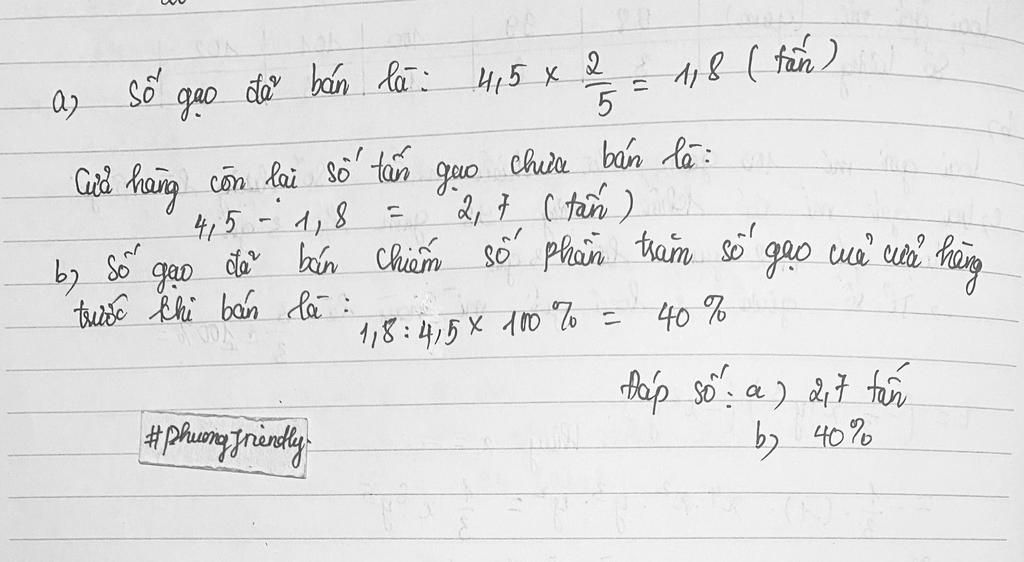 a) Số gạo đã bán là: 4,5 × 2/5 = 1,8 (tấn)
Cửa hàng còn lại số tấn gạo chưa bán là:
4,5 - 1,8 = 2,7 (tấn)
b) Số gạo đã bán chiếm số phần trăm số gạo của cửa hàng
trước khi bán là:
1,8 : 4,5 × 100% = 40%
Đáp số: a) 2,7 tấn
b) 40%
#phuongfriendly.